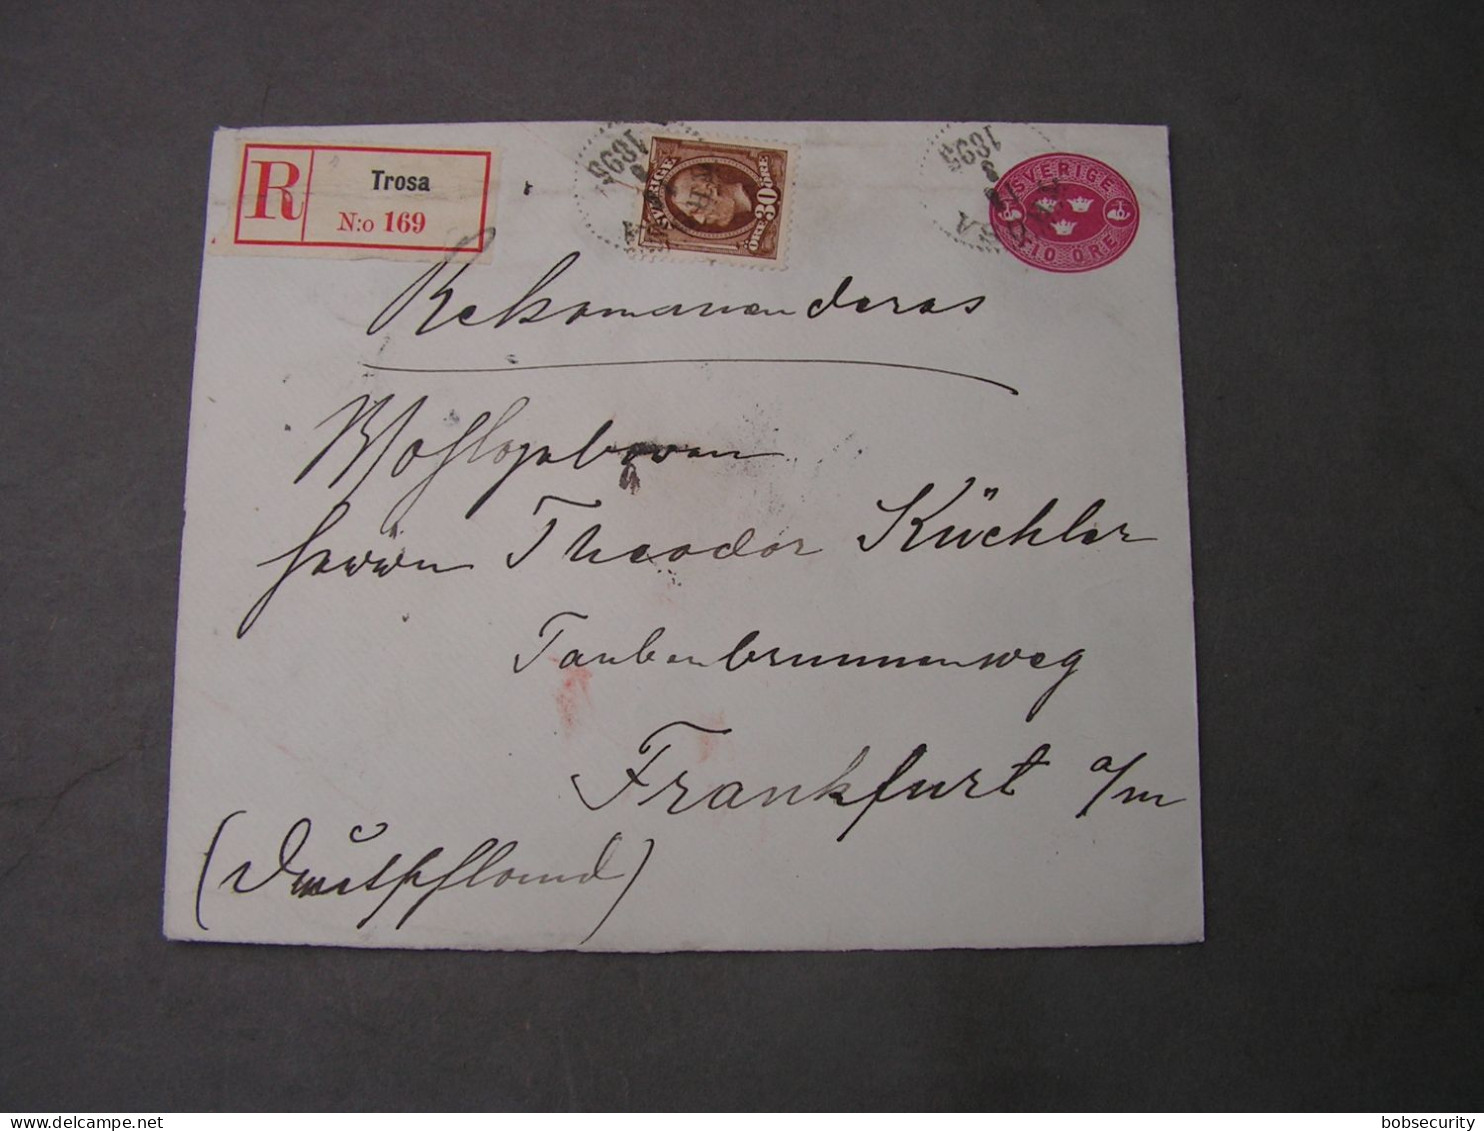 R
Trosa
N:o 169
1895
SVERIGE
30 ÖRE ÖRE
1895
SVERIGE
10 ÖRE
Rekommenderas
Wohlgeboren
Herrn Theodor Küchler
Taubenbrunnenweg
Frankfurt a/m
(Deutschland)
bobsecurity